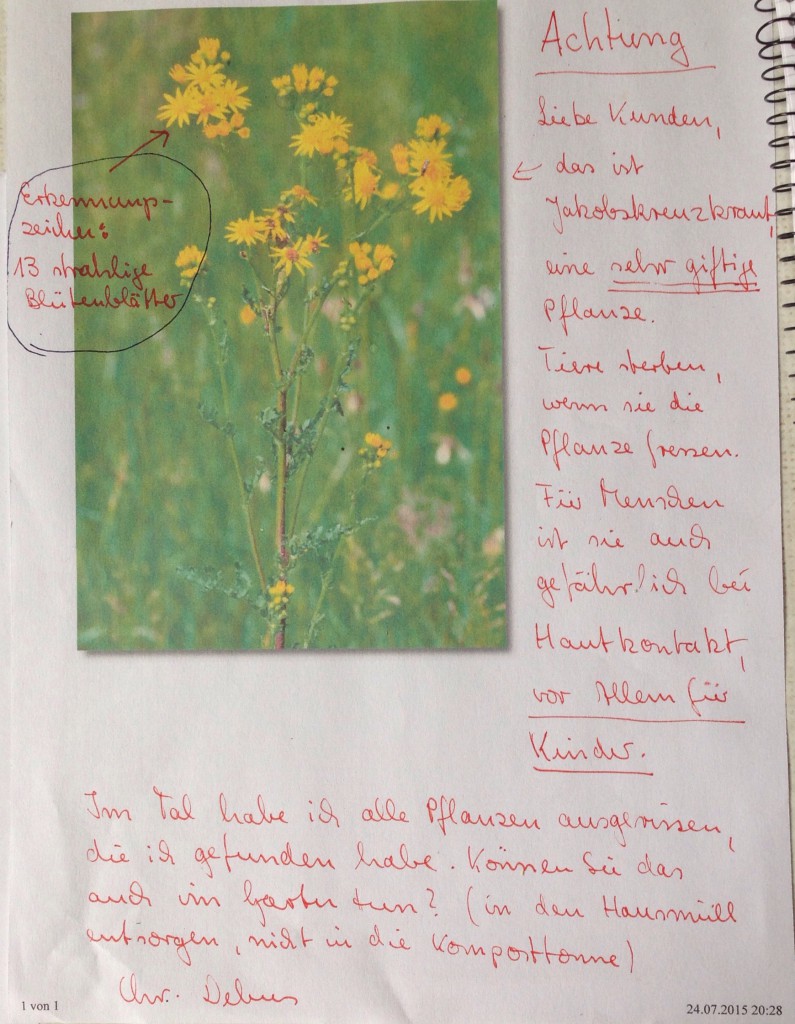 Achtung
Liebe Kunden,
← das ist
Jakobskreuzkraut,
eine sehr giftige
Pflanze.
Tiere sterben,
wenn sie die
Pflanze fressen.
Für Menschen
ist sie auch
gefährlich bei
Hautkontakt,
vor Allem für
Kinder.
Erkennungs-
zeichen:
13 strahlige
Blütenblätter
Im Tal habe ich alle Pflanzen ausgerissen,
die ich gefunden habe. Können Sie das
auch im Garten tun? (in den Hausmüll
entsorgen, nicht in die Komposttonne)
Chr. Debus
1 von 1
24.07.2015 20:28